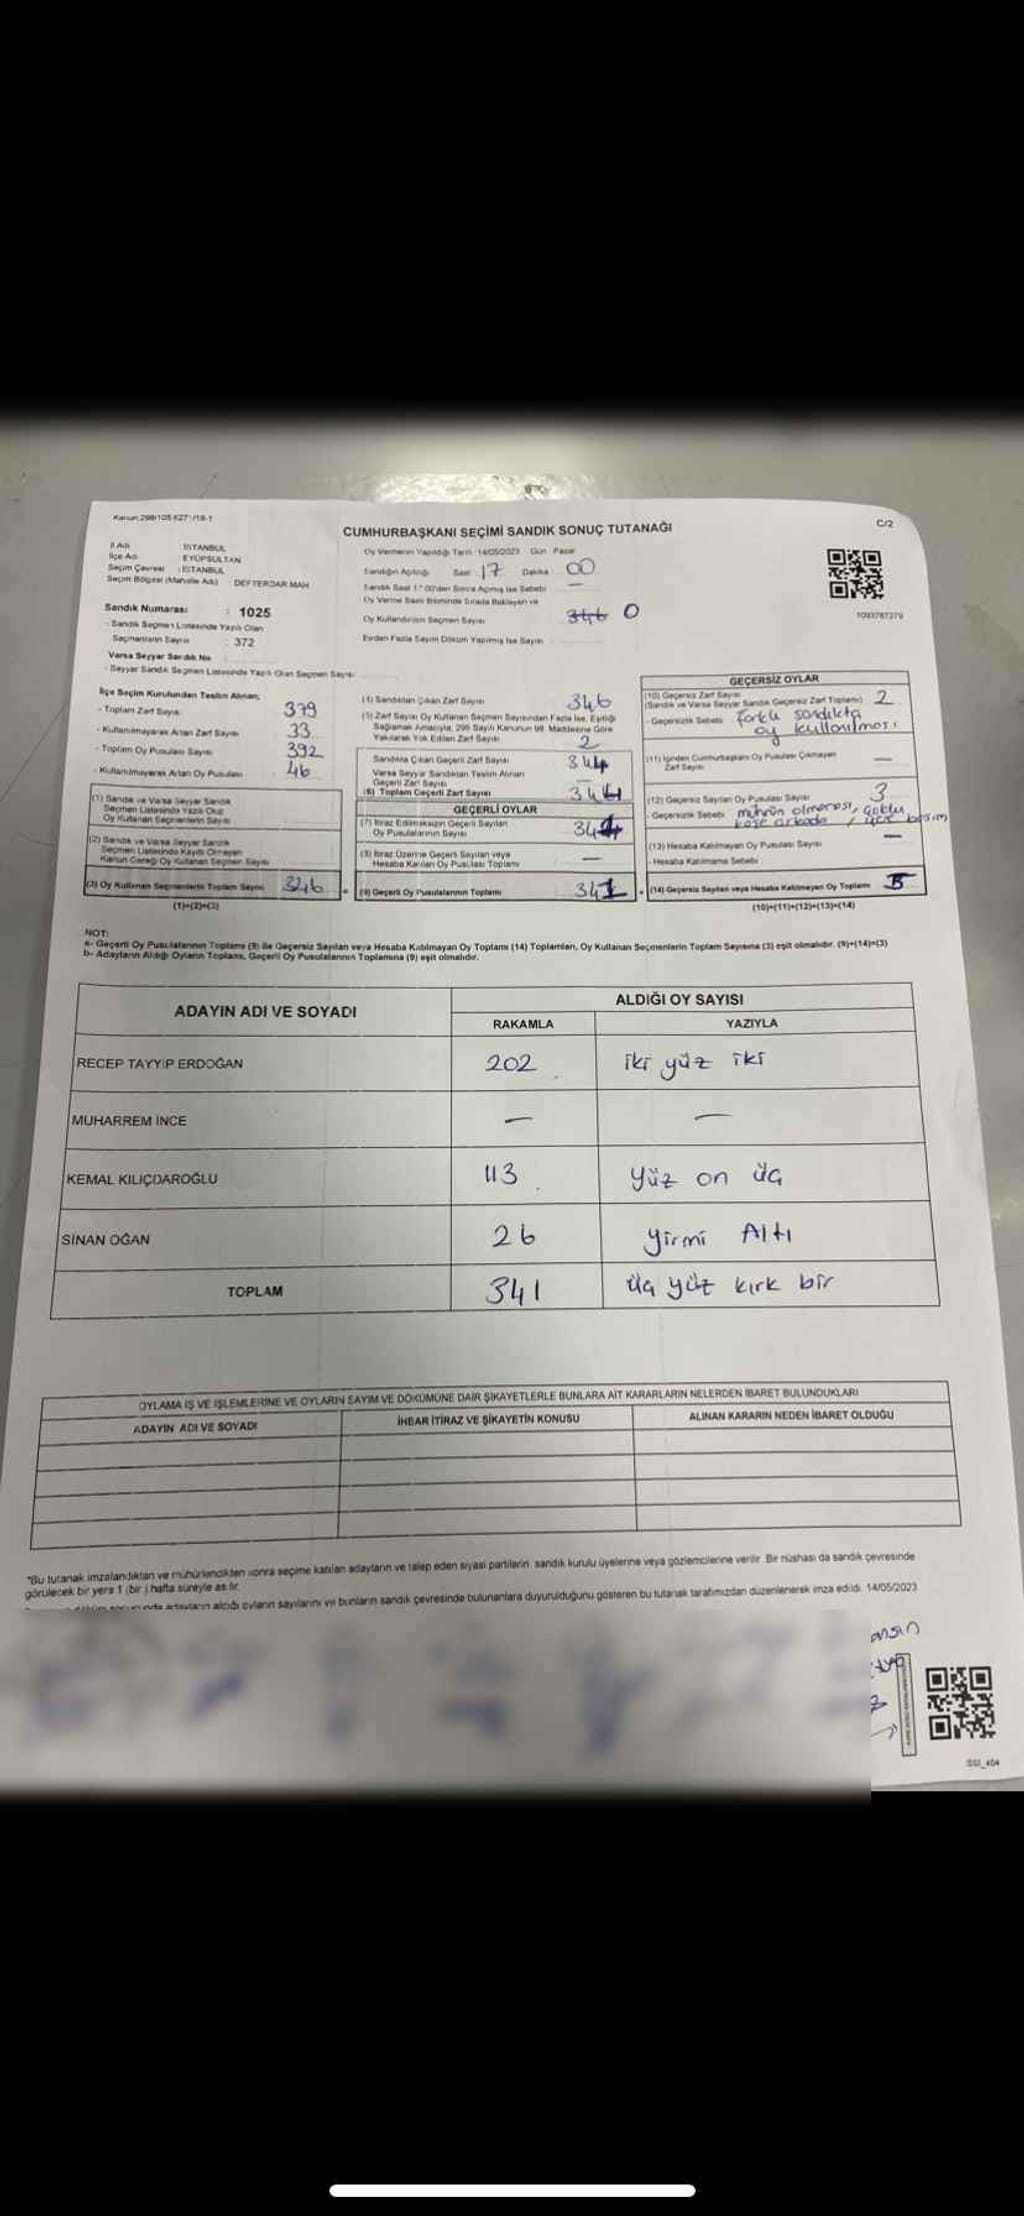 Kanun:298/105-6271/18-1
C/2
CUMHURBAŞKANI SEÇİMİ SANDIK SONUÇ TUTANAĞI
İl Adı : İSTANBUL
İlçe Adı : EYÜPSULTAN
Seçim Çevresi : İSTANBUL
Seçim Bölgesi (Mahalle Adı) : DEFTERDAR MAH
Sandık Numarası : 1025
- Sandık Seçmen Listesinde Yazılı Olan
Seçmenlerin Sayısı : 372
Varsa Seyyar Sandık No
- Seyyar Sandık Seçmen Listesinde Yazılı Olan Seçmen Sayısı
Oy Vermenin Yapıldığı Tarih : 14/05/2023 Gün : Pazar
Sandığın Açılışı Saat : 17 Dakika : 00
Sandık Saat 17:00'den Sonra Açılmış İse Sebebi —
Oy Verme Saati Bitiminde Sırada Bekleyen ve
Oy Kullandırılan Seçmen Sayısı 346 0
Birden Fazla Sayım Döküm Yapılmış İse Sayısı
1093787279
İlçe Seçim Kurulundan Teslim Alınan;
- Toplam Zarf Sayısı 379
- Kullanılmayarak Artan Zarf Sayısı 33
- Toplam Oy Pusulası Sayısı 392
- Kullanılmayarak Artan Oy Pusulası 46
(1) Sandık ve Varsa Seyyar Sandık
Seçmen Listesinde Yazılı Olup
Oy Kullanan Seçmenlerin Sayısı
(2) Sandık ve Varsa Seyyar Sandık
Seçmen Listesinde Kayıtlı Olmayan
Kanun Gereği Oy Kullanan Seçmen Sayısı
(3) Oy Kullanan Seçmenlerin Toplam Sayısı 346
(1)+(2)=(3)
(4) Sandıktan Çıkan Zarf Sayısı 346
(5) Zarf Sayısı Oy Kullanan Seçmen Sayısından Fazla İse, Eşitliği
Sağlamak Amacıyla, 298 Sayılı Kanunun 98. Maddesine Göre
Yakılarak Yok Edilen Zarf Sayısı 2
Sandıkta Çıkan Geçerli Zarf Sayısı 344
Varsa Seyyar Sandıktan Teslim Alınan
Geçerli Zarf Sayısı —
(6) Toplam Geçerli Zarf Sayısı 344
GEÇERLİ OYLAR
(7) İtiraz Edilmeksizin Geçerli Sayılan
Oy Pusulalarının Sayısı
(8) İtiraz Üzerine Geçerli Sayılan veya
Hesaba Katılan Oy Pusulası Toplamı —
(9) Geçerli Oy Pusulalarının Toplamı 341
GEÇERSİZ OYLAR
(10) Geçersiz Zarf Sayısı
(Sandık ve Varsa Seyyar Sandık Geçersiz Zarf Toplamı) 2
- Geçersizlik Sebebi farklı sandıkta
oy kullanılması
(11) İçinden Cumhurbaşkanı Oy Pusulası Çıkmayan
Zarf Sayısı —
(12) Geçersiz Sayılan Oy Pusulası Sayısı 3
- Geçersizlik Sebebi mührün olmaması, çoklu
köşe arkada
(13) Hesaba Katılmayan Oy Pusulası Sayısı —
- Hesaba Katılmama Sebebi
(14) Geçersiz Sayılan veya Hesaba Katılmayan Oy Toplamı 5
(10)+(11)+(12)+(13)=(14)
NOT:
a- Geçerli Oy Pusulalarının Toplamı (9) ile Geçersiz Sayılan veya Hesaba Katılmayan Oy Toplamı (14) Toplamları, Oy Kullanan Seçmenlerin Toplam Sayısına (3) eşit olmalıdır. (9)+(14)=(3)
b- Adayların Aldığı Oyların Toplamı, Geçerli Oy Pusulalarının Toplamına (9) eşit olmalıdır.
ADAYIN ADI VE SOYADI
ALDIĞI OY SAYISI
RAKAMLA YAZIYLA
RECEP TAYYİP ERDOĞAN 202 iki yüz iki
MUHARREM İNCE — —
KEMAL KILIÇDAROĞLU 113 yüz on üç
SİNAN OĞAN 26 yirmi Altı
TOPLAM 341 üç yüz kırk bir
OYLAMA İŞ VE İŞLEMLERİNE VE OYLARIN SAYIM VE DÖKÜMÜNE DAİR ŞİKAYETLERLE BUNLARA AİT KARARLARIN NELERDEN İBARET BULUNDUKLARI
ADAYIN ADI VE SOYADI İHBAR İTİRAZ VE ŞİKAYETİN KONUSU ALINAN KARARIN NEDEN İBARET OLDUĞU
*Bu tutanak imzalandıktan ve mühürlendikten sonra seçime katılan adayların ve talep eden siyasi partilerin, sandık kurulu üyelerine veya gözlemcilerine verilir. Bir nüshası da sandık çevresinde
görülecek bir yere 1 (bir) hafta süreyle asılır.
adayların aldığı oyların sayılarını ve bunların sandık çevresinde bulunanlara duyurulduğunu gösteren bu tutanak tarafımızdan düzenlenerek imza edildi. 14/05/2023